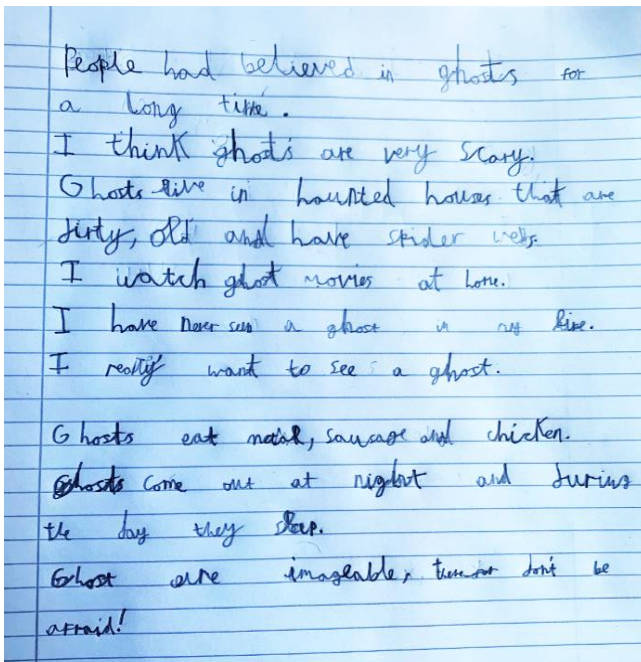 People had believed in ghosts for
a long time.
I think ghosts are very scary.
Ghosts live in haunted houses that are
dirty, old and have spider webs.
I watch ghost movies at home.
I have never seen a ghost in my life.
I really want to see a ghost.
Ghosts eat , sausage and chicken.
Ghosts come out at night and during
the day they sleep.
Ghost are imageable, don't be
afraid!